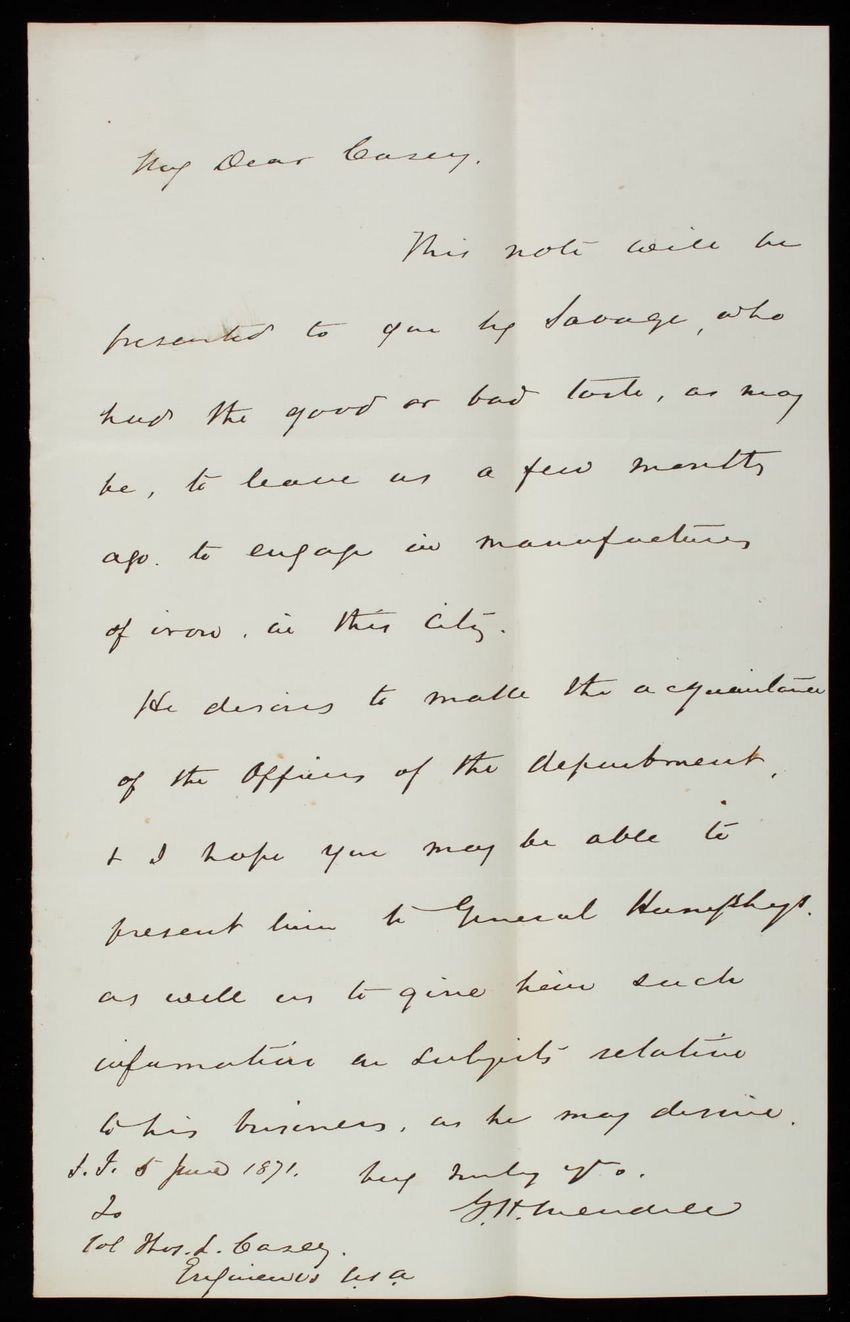 My Dear Casey.
This note will be
presented to you by Savage, who
had the good or bad taste, as may
be, to leave us a few months
ago. to engage in manufactures
of iron, in this City.
He desires to make the acquaintance
of the Officers of the department,
& I hope you may be able to
present him to General Humphreys.
as well as to give him such
information on subjects relative
to his business, as he may desire.
S.F. 5 June 1871. Very truly yrs.
G.H. Mendell
To
Col Thos. L. Casey.
Engineers USA